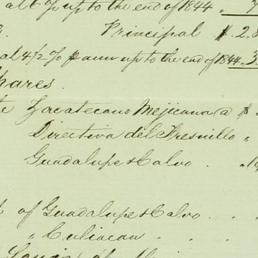 al 6% up to the end of 1844.
Principal $ 2.8
al 4½ % p ann up to the end of 1844. 3
Shares.
te Zacatecano Mejicana a $
Directiva del Fresnillo "
Guadalupe & Calvo .
t of Guadalupe & Calvo . .
" Culiacan . .